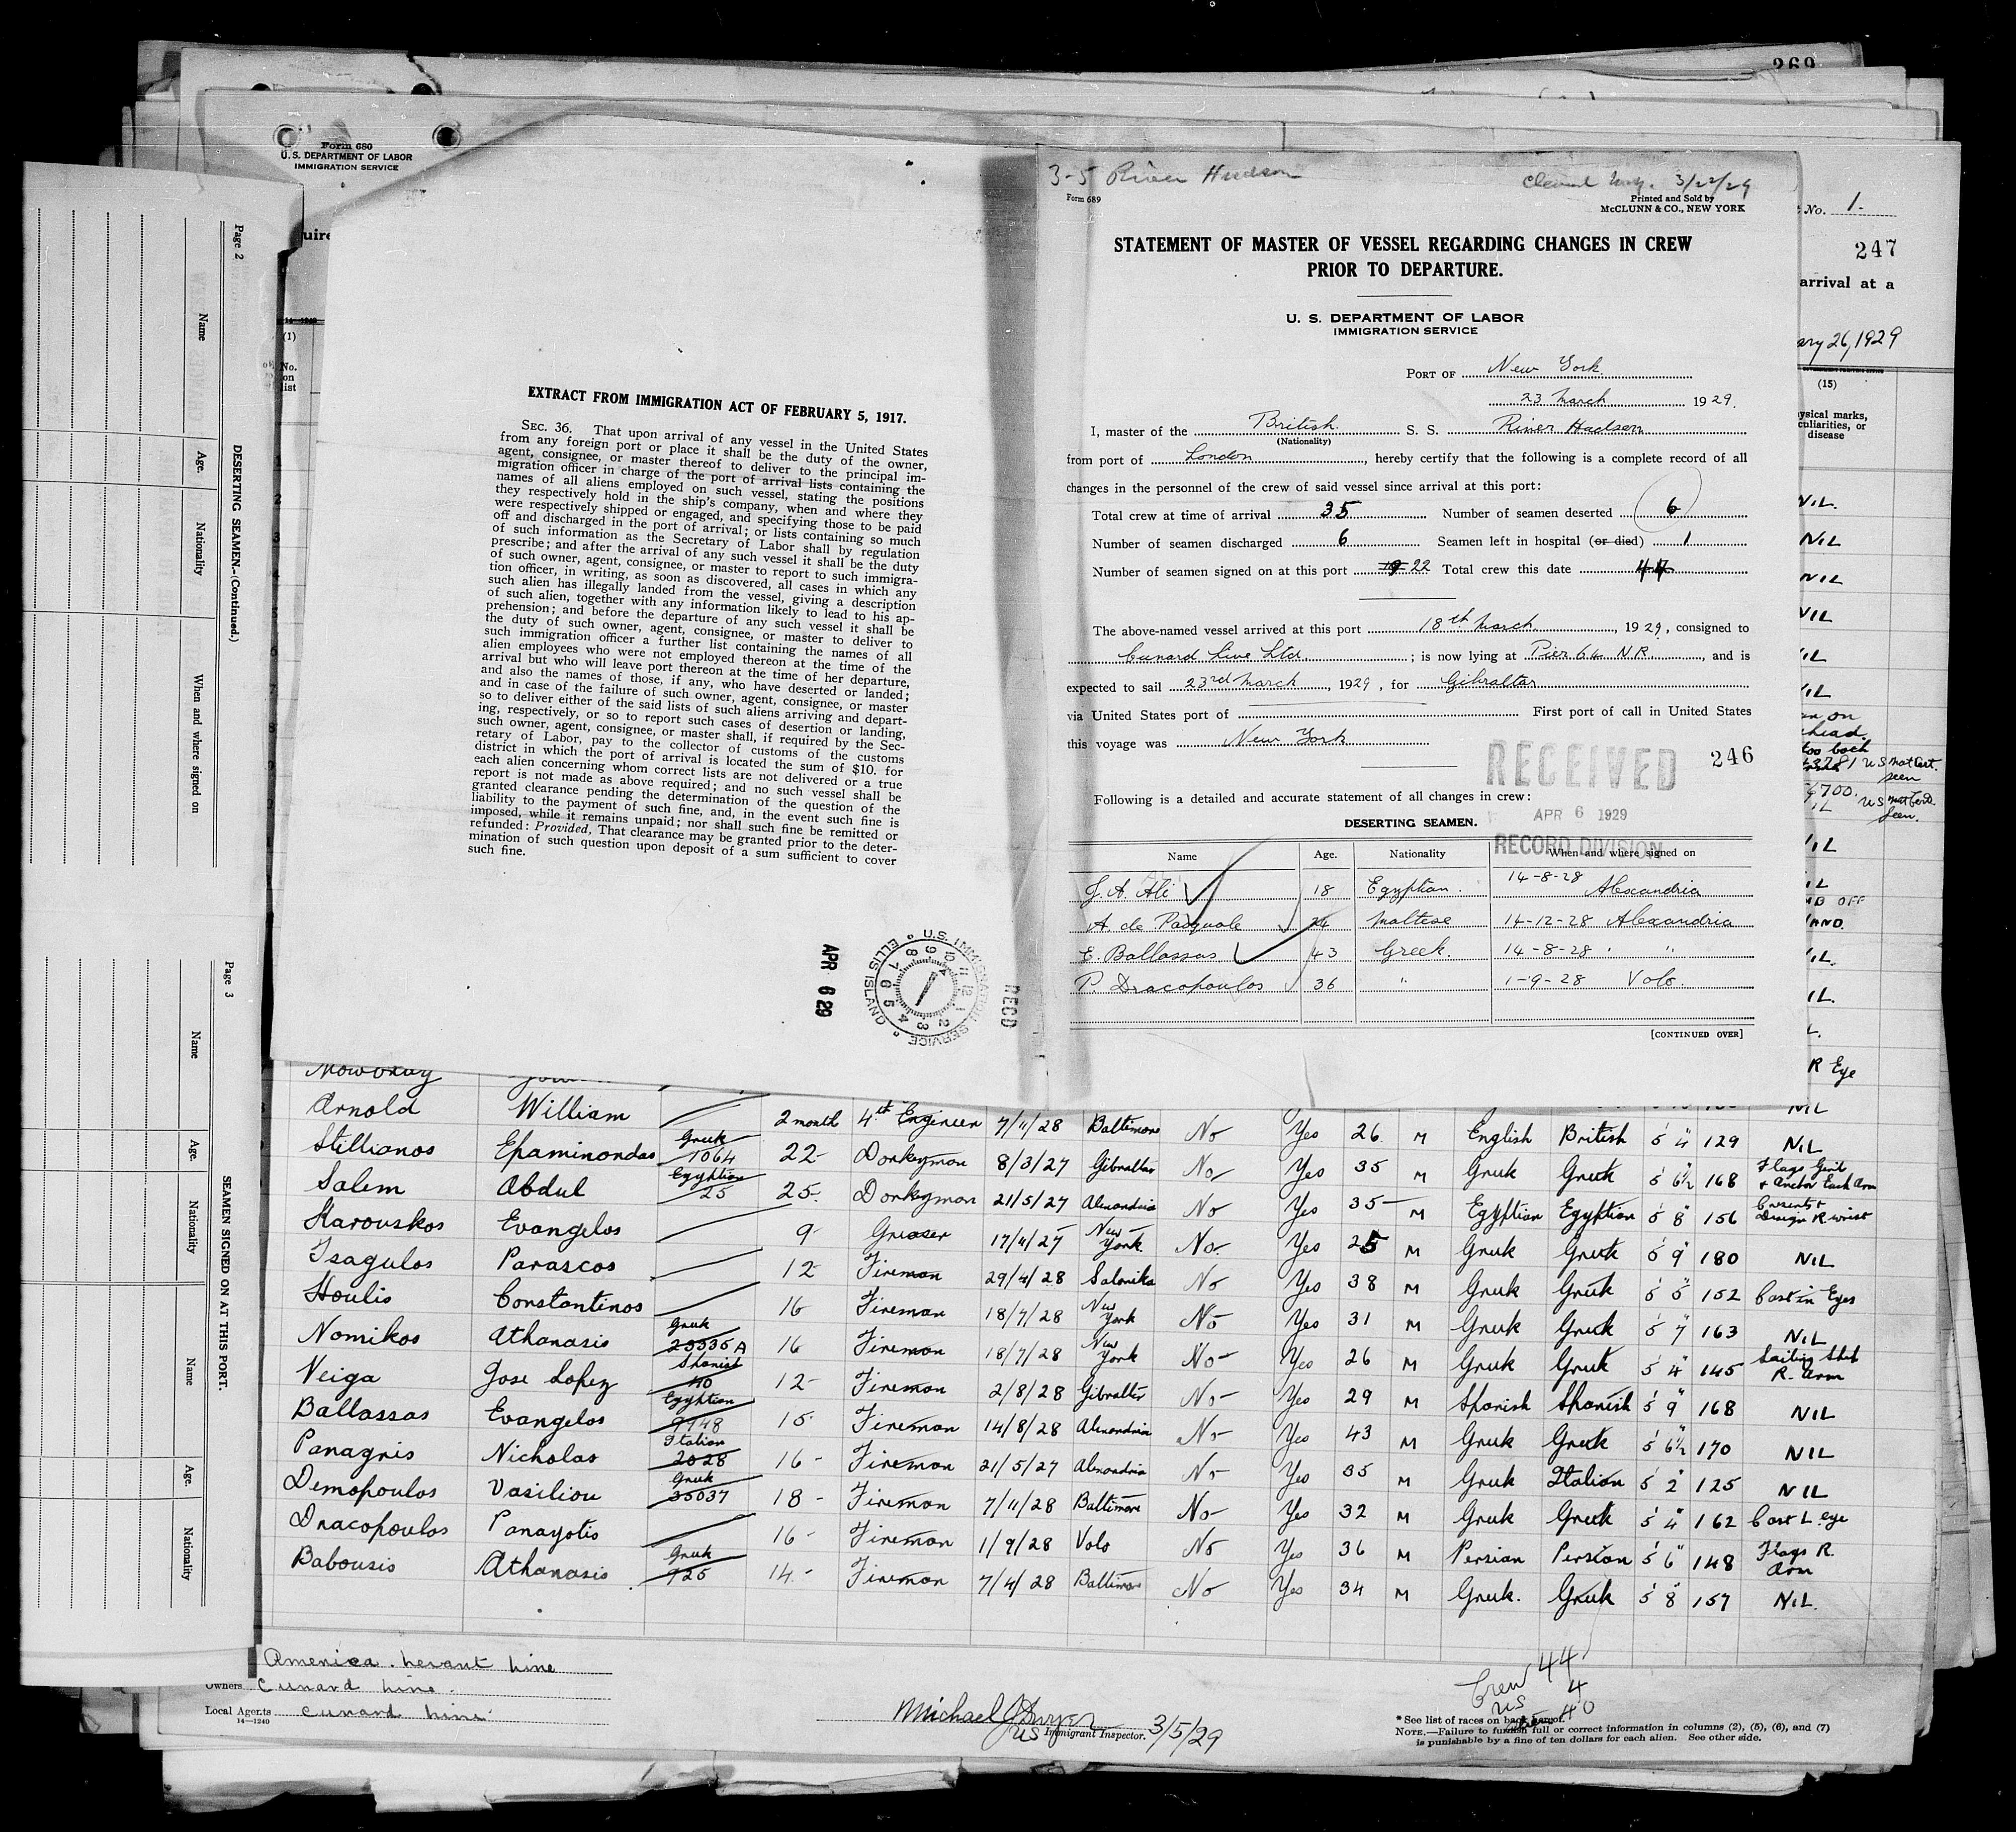 269
Form 680
U. S. DEPARTMENT OF LABOR
IMMIGRATION SERVICE
No. 1.
247
arrival at a
26, 1929
14—1240
(1)
No.
on
list
(15)
marks,
or
disease
Page 2
DESERTING SEAMEN.—(Continued.)
Name
Age.
Nationality
When and where signed on
Page 3
SEAMEN SIGNED ON AT THIS PORT.
Name
Age.
Nationality
Name
Age.
Nationality
EXTRACT FROM IMMIGRATION ACT OF FEBRUARY 5, 1917.
SEC. 36. That upon arrival of any vessel in the United States
from any foreign port or place it shall be the duty of the owner,
agent, consignee, or master thereof to deliver to the principal im-
migration officer in charge of the port of arrival lists containing the
names of all aliens employed on such vessel, stating the positions
they respectively hold in the ship's company, when and where they
were respectively shipped or engaged, and specifying those to be paid
off and discharged in the port of arrival; or lists containing so much
of such information as the Secretary of Labor shall by regulation
prescribe; and after the arrival of any such vessel it shall be the duty
of such owner, agent, consignee, or master to report to such immigra-
tion officer, in writing, as soon as discovered, all cases in which any
such alien has illegally landed from the vessel, giving a description
of such alien, together with any information likely to lead to his ap-
prehension; and before the departure of any such vessel it shall be
the duty of such owner, agent, consignee, or master to deliver to
such immigration officer a further list containing the names of all
alien employees who were not employed thereon at the time of the
arrival but who will leave port thereon at the time of her departure,
and also the names of those, if any, who have deserted or landed;
and in case of the failure of such owner, agent, consignee, or master
so to deliver either of the said lists of such aliens arriving and depart-
ing, respectively, or so to report such cases of desertion or landing,
such owner, agent, consignee, or master shall, if required by the Sec-
retary of Labor, pay to the collector of customs of the customs
district in which the port of arrival is located the sum of $10. for
each alien concerning whom correct lists are not delivered or a true
report is not made as above required; and no such vessel shall be
granted clearance pending the determination of the question of the
liability to the payment of such fine, and, in the event such fine is
imposed, while it remains unpaid; nor shall such fine be remitted or
refunded: Provided, That clearance may be granted prior to the deter-
mination of such question upon deposit of a sum sufficient to cover
such fine.
APR 6 29
U.S. IMMIGRATION SERVICE ELLIS ISLAND
RECD
3-5 River Hudson
3/22/29
Form 689
Printed and Sold by
McCLUNN & CO., NEW YORK
STATEMENT OF MASTER OF VESSEL REGARDING CHANGES IN CREW
PRIOR TO DEPARTURE.
U. S. DEPARTMENT OF LABOR
IMMIGRATION SERVICE
PORT OF New York.
23 March 1929.
I, master of the British S. S. River Hudson
(Nationality)
from port of London, hereby certify that the following is a complete record of all
changes in the personnel of the crew of said vessel since arrival at this port:
Total crew at time of arrival 35 Number of seamen deserted 6
Number of seamen discharged 6 Seamen left in hospital (or died) 1
Number of seamen signed on at this port 22 Total crew this date 44
The above-named vessel arrived at this port 18th March, 1929, consigned to
Cunard Line Ltd.; is now lying at Pier 64 N.R., and is
expected to sail 23rd March, 1929, for Gibraltar
via United States port of First port of call in United States
this voyage was New York
RECEIVED
246
Following is a detailed and accurate statement of all changes in crew:
APR 6 1929
DESERTING SEAMEN.
RECORD DIVISION
Name Age. Nationality When and where signed on
J. A. Ali 18 Egyptian. 14-8-28 Alexandria
A. de Pasquale 24 Maltese 14-12-28 Alexandria
E. Ballassas 43 Greek. 14-8-28 " "
P. Dracopoulos 36 " 1-9-28 Volo.
[CONTINUED OVER]
R Eye
Arnold William 2 month 4th Engineer 7/11/28 Baltimore No Yes 26 M English British 5' 4" 129 NIL
Stillianos Epaminondas Greek 1064 22 Donkeyman 8/3/27 Gibraltar No Yes 35 M Greek Greek 5' 6½" 168 Flags Girl & Anchor Each Arm
Salem Abdul Egyptian 25 25 Donkeyman 21/5/27 Alexandria No Yes 35 M Egyptian Egyptian 5' 8" 156 Cresents & Design R. wrist
Karouskos Evangelos 9 Greaser 17/4/27 New York No Yes 25 M Greek Greek 5' 9" 180 NIL
Tsagulos Parascos 12 Fireman 29/4/28 Salonika No Yes 38 M Greek Greek 5' 5" 152 Cast in Eyes
Houlis Constantinos 16 Fireman 18/7/28 New York No Yes 31 M Greek Greek 5' 7" 163 NIL
Nomikos Athanasis Greek 23535A 16 Fireman 18/7/28 New York No Yes 26 M Greek Greek 5' 4" 145 Sailing Ship R. Arm
Veiga Jose Lopez Spanish 40 12 Fireman 2/8/28 Gibraltar No Yes 29 M Spanish Spanish 5' 9" 168 NIL
Ballassas Evangelos Egyptian 9948 15 Fireman 14/8/28 Alexandria No Yes 43 M Greek Greek 5' 6½" 170 NIL
Panagris Nicholas Italian 2028 16 Fireman 21/5/27 Alexandria No Yes 35 M Greek Italian 5' 2" 125 NIL
Demopoulos Vasiliou Greek 35037 18 Fireman 7/11/28 Baltimore No Yes 32 M Greek Greek 5' 4" 162 Cast L. eye
Dracopoulos Panayotis 16 Fireman 1/9/28 Volo No Yes 36 M Persian Persian 5' 6" 148 Flags R. Arm
Babousis Athanasis Greek 725 14 Fireman 7/4/28 Baltimore No Yes 34 M Greek. Greek 5' 8" 157 NIL.
America Levant Line
Owners Cunard Line.
Local Agents Cunard Line
14—1240
Michael J Dwyer
US Immigrant Inspector. 3/5/29
Crew 44
US 4
40
* See list of races on back hereof.
NOTE.—Failure to furnish full or correct information in columns (2), (5), (6), and (7)
is punishable by a fine of ten dollars for each alien. See other side.